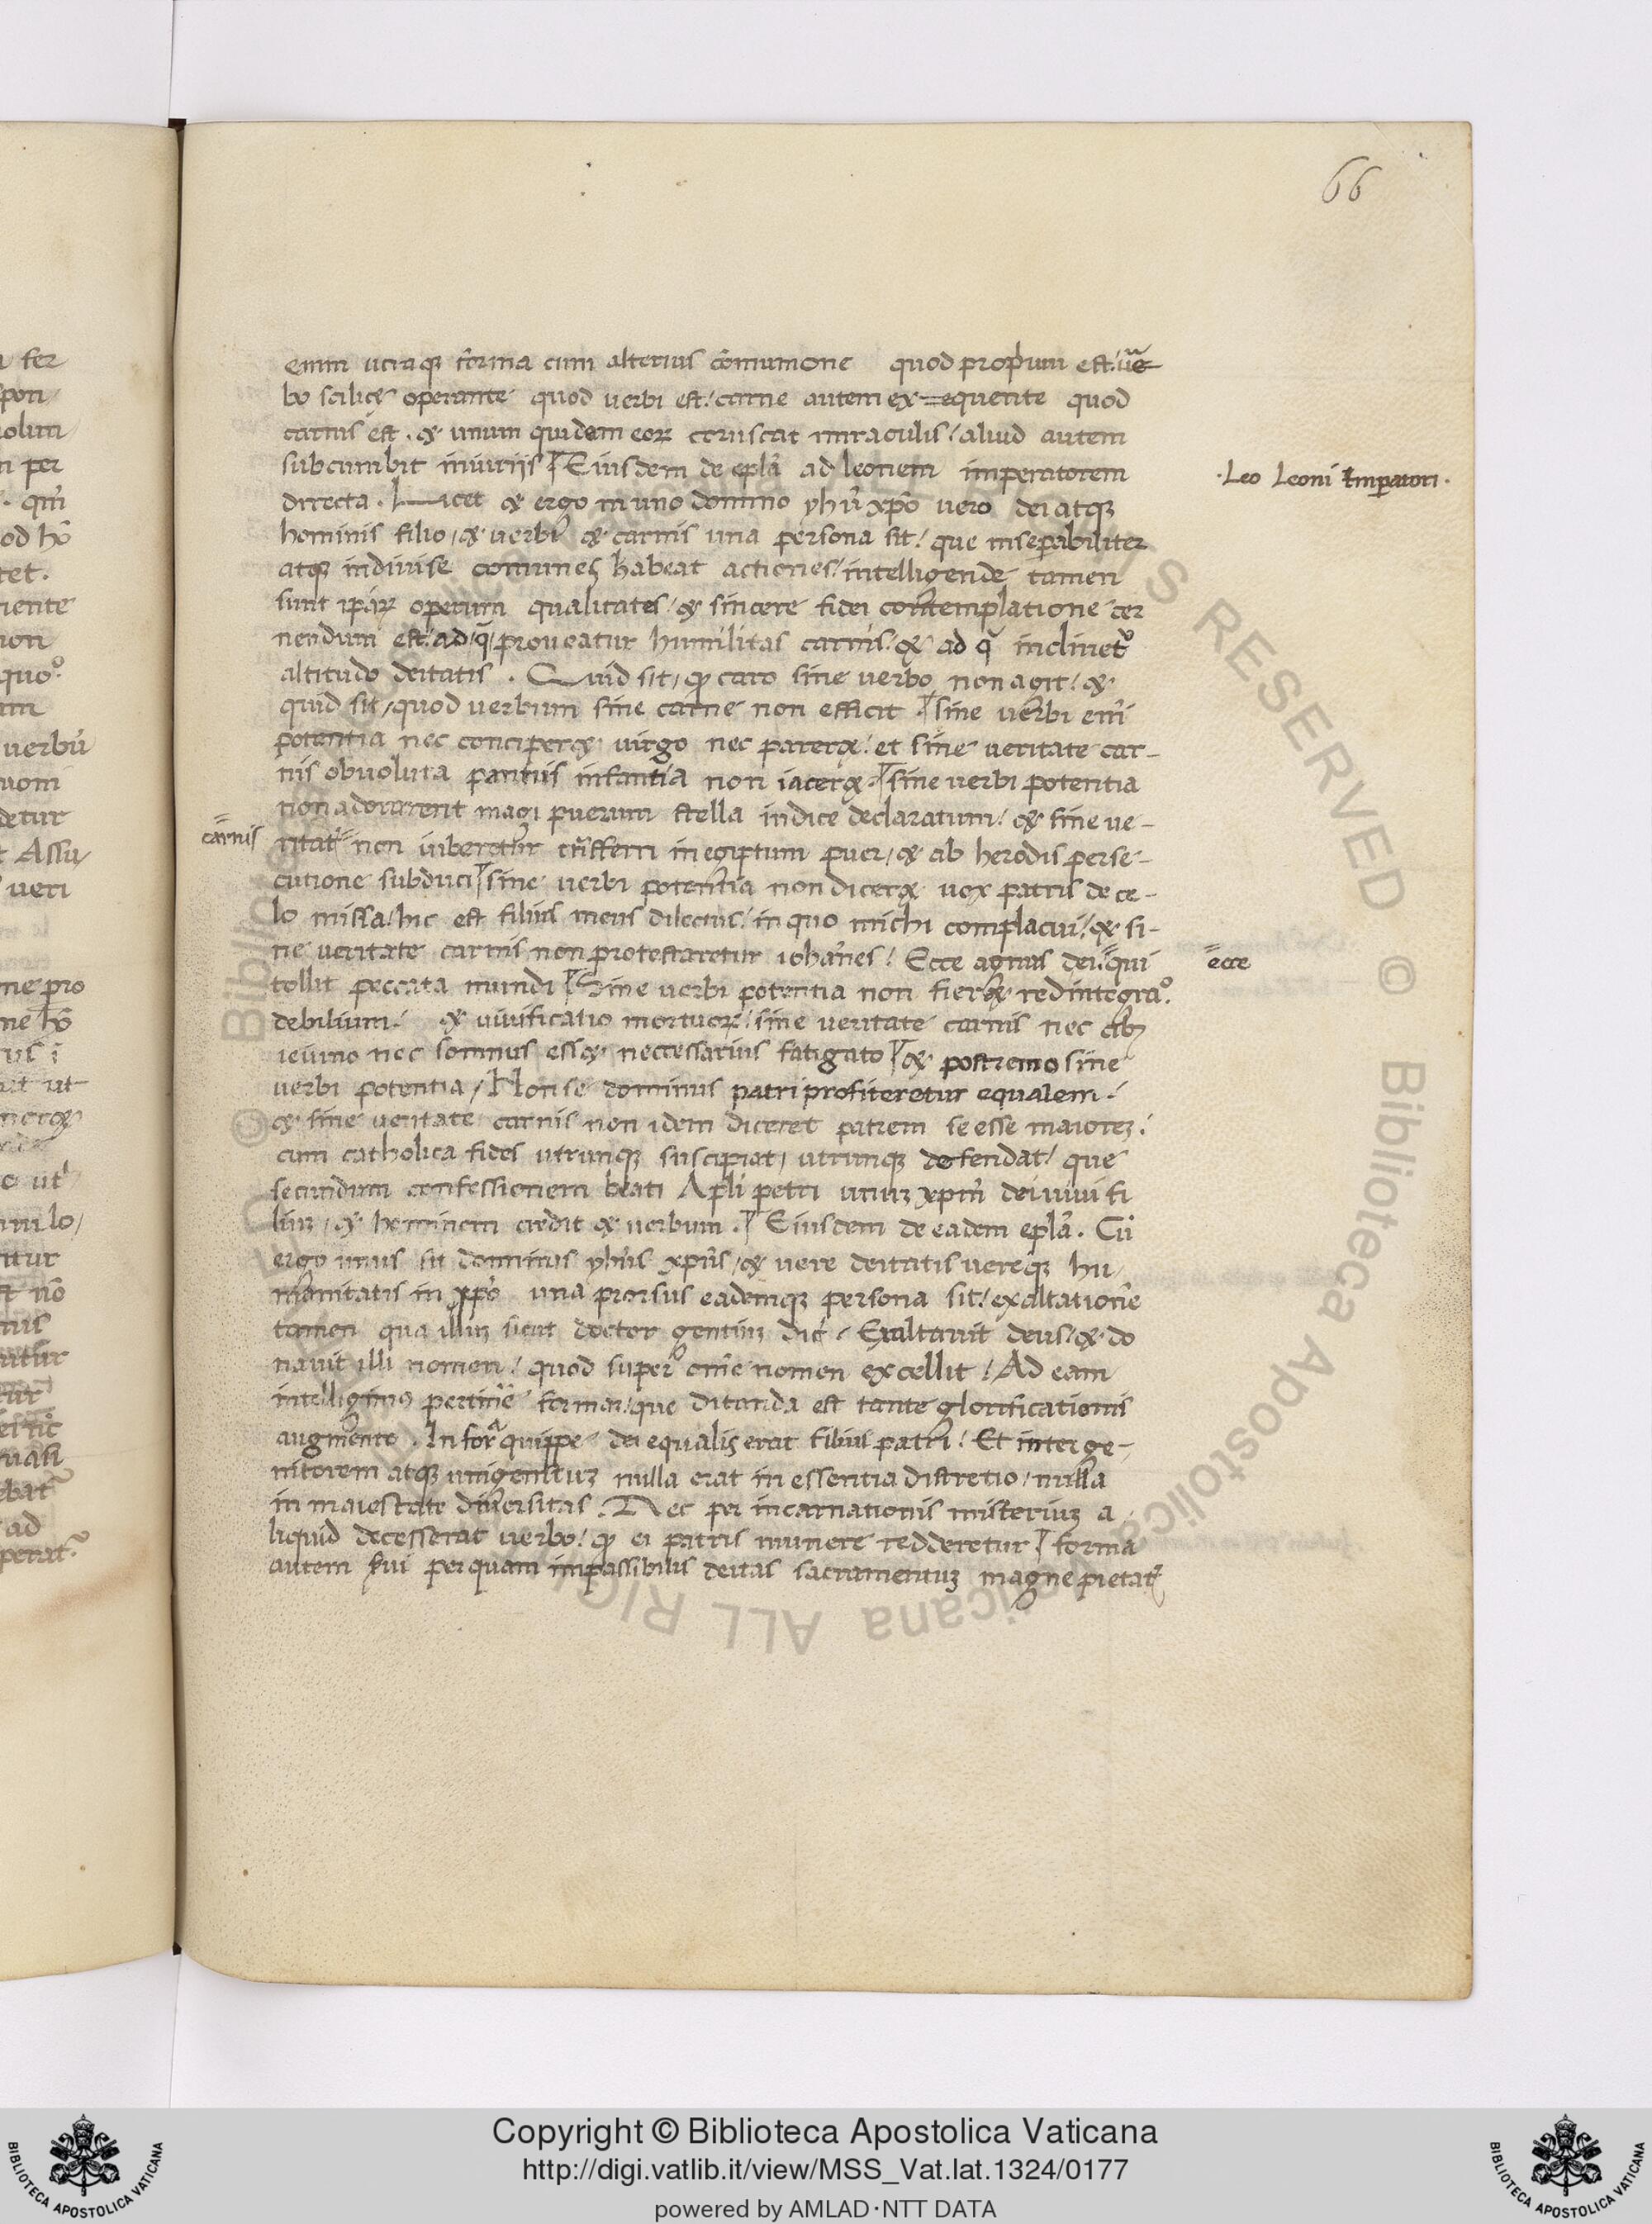 66
enim utraqꝫ forma cum alterius cōmunione quod proprium est! uer
bo scilicꝫ operante quod verbi est! carne autem exequente quod
carnis est. & unum quidem eoꝝ coruscat miraculis/ aliud autem
subcumbit iniuriis Eiusdem de epl̄a ad leonem imperatorem
directa. Licet & ergo in uno domino yhū xp̄o vero dei atqꝫ
hominis filio/ & verbi & carnis una persona sit! que inseperabiliter
atqꝫ indiuise comunes habeat actiones! intelligende tamen
sunt ipaꝝ operum qualitates/ & sincere fidei contemplatione cer
nendum est! ad q̄ proueatur humilitas carnis! & ad q̄ inclinetᷣ
altitudo deitatis. Quid sit/ qꝫ caro sine verbo non agit! &
quid sit/ quod verbum sine carne non efficit sine verbi eni̅
potentia nec conciperet virgo nec pareret! et sine veritate car-
nis obuoluta pannis infantia non iaceret sine verbi potentia
non adorarent magi puerum stella indice declaratum/ & sine ve-
ritate non iuberetur trāsferri in egiptum puer/ & ab herodis perse-
cutione subduci sine verbi potentia non diceret vox patris de ce-
lo missa/ hic est filius meus dilectus/ in quo michi complacui/ & si-
ne veritate carnis non protestaretur iohānes/ Ecce agnus dei qui
tollit peccata mundi Sine verbi potentia non fieret redintegra°.
debilium! & viuificatio mortuoꝝ/ sine veritate carnis nec cibꝫ
ieiuno nec somnus esset neccessarius fatigato & postremo sine
verbi potentia/ Non se dominus patri profiteretur equalem!
& sine veritate carnis non idem diceret patrem se esse maioreꝫ!
cum catholica fides utrunqꝫ suscipiat/ utrunqꝫ defendat/ que
secundum confessionem beati Apl̄i petri unuꝫ xp̄m dei viui fi
liuꝫ/ & hominem credit & verbum. Eiusdem de eadem epl̄a. Cū
ergo unus sit dominus yhūs xp̄us/ & vere deitatis uereqꝫ hu/
manitatis in xp̄o una prorsus eademqꝫ persona sit/ exaltatione
tamen qua illuꝫ sicut doctor gentiuꝫ dic̄/ Exaltauit deus/ & do
nauit illi nomen/ quod super om̄e nomen excellit/ Ad eam
intelligimꝰ pertinēe formaꝫ/ que ditanda est tante glorificationis
augmento. In forᵃ quippe dei equalis erat filius patri/ Et inter ge-
nitorem atqꝫ unigenituꝫ nulla erat in essentia discretio/ nulla
in maiestate diuersitas. Nec per incarnationis misteriuꝫ a
liquid decesserat verbo/ qꝫ ei patris munere redderetur forma
autem serui per quam impassibilis deitas sacramentuꝫ magne pietatꝭ
·Leo Leoni Imperatori·
carnis
ecce
Copyright © Biblioteca Apostolica Vaticana
http://digi.vatlib.it/view/MSS_Vat.lat.1324/0177
powered by AMLAD·NTT DATA
BIBLIOTECA APOSTOLICA VATICANA
BIBLIOTECA APOSTOLICA VATICANA